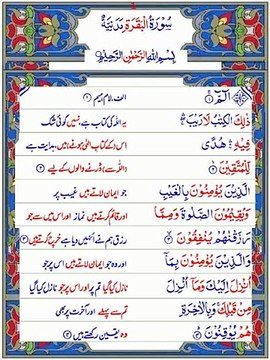 سُوْرَةُ الْبَقَرَةِ مَدَنِيَّةٌ
بِسْمِ اللهِ الرَّحْمٰنِ الرَّحِيْمِ
الٓمّٓ ۚ الف، لام، میم ۱
ذٰلِكَ الْكِتٰبُ لَا رَيْبَ یہ اللہ کی کتاب ہے، نہیں کوئی شک
فِيْهِ هُدًى اس کے کتاب الٰہی ہونے میں، ہدایت ہے
لِّلْمُتَّقِيْنَ (اللہ سے) ڈرنے والوں کے لیے ۲
الَّذِيْنَ يُؤْمِنُوْنَ بِالْغَيْبِ جو ایمان لاتے ہیں غیب پر
وَيُقِيْمُوْنَ الصَّلٰوةَ وَمِمَّا اور قائم کرتے ہیں نماز اور اس میں سے جو
رَزَقْنٰهُمْ يُنْفِقُوْنَ رزق ہم نے انہیں دیا ہے خرچ کرتے ہیں ۳
وَالَّذِيْنَ يُؤْمِنُوْنَ بِمَآ اور وہ جو ایمان لاتے ہیں اس پر جو
اُنْزِلَ اِلَيْكَ وَمَآ اُنْزِلَ نازل کیا گیا تم پر اور اس پر جو نازل کیا گیا
مِنْ قَبْلِكَ وَبِالْاٰخِرَةِ تم سے پہلے اور آخرت پر بھی
هُمْ يُوْقِنُوْنَ وہ یقین رکھتے ہیں ۴